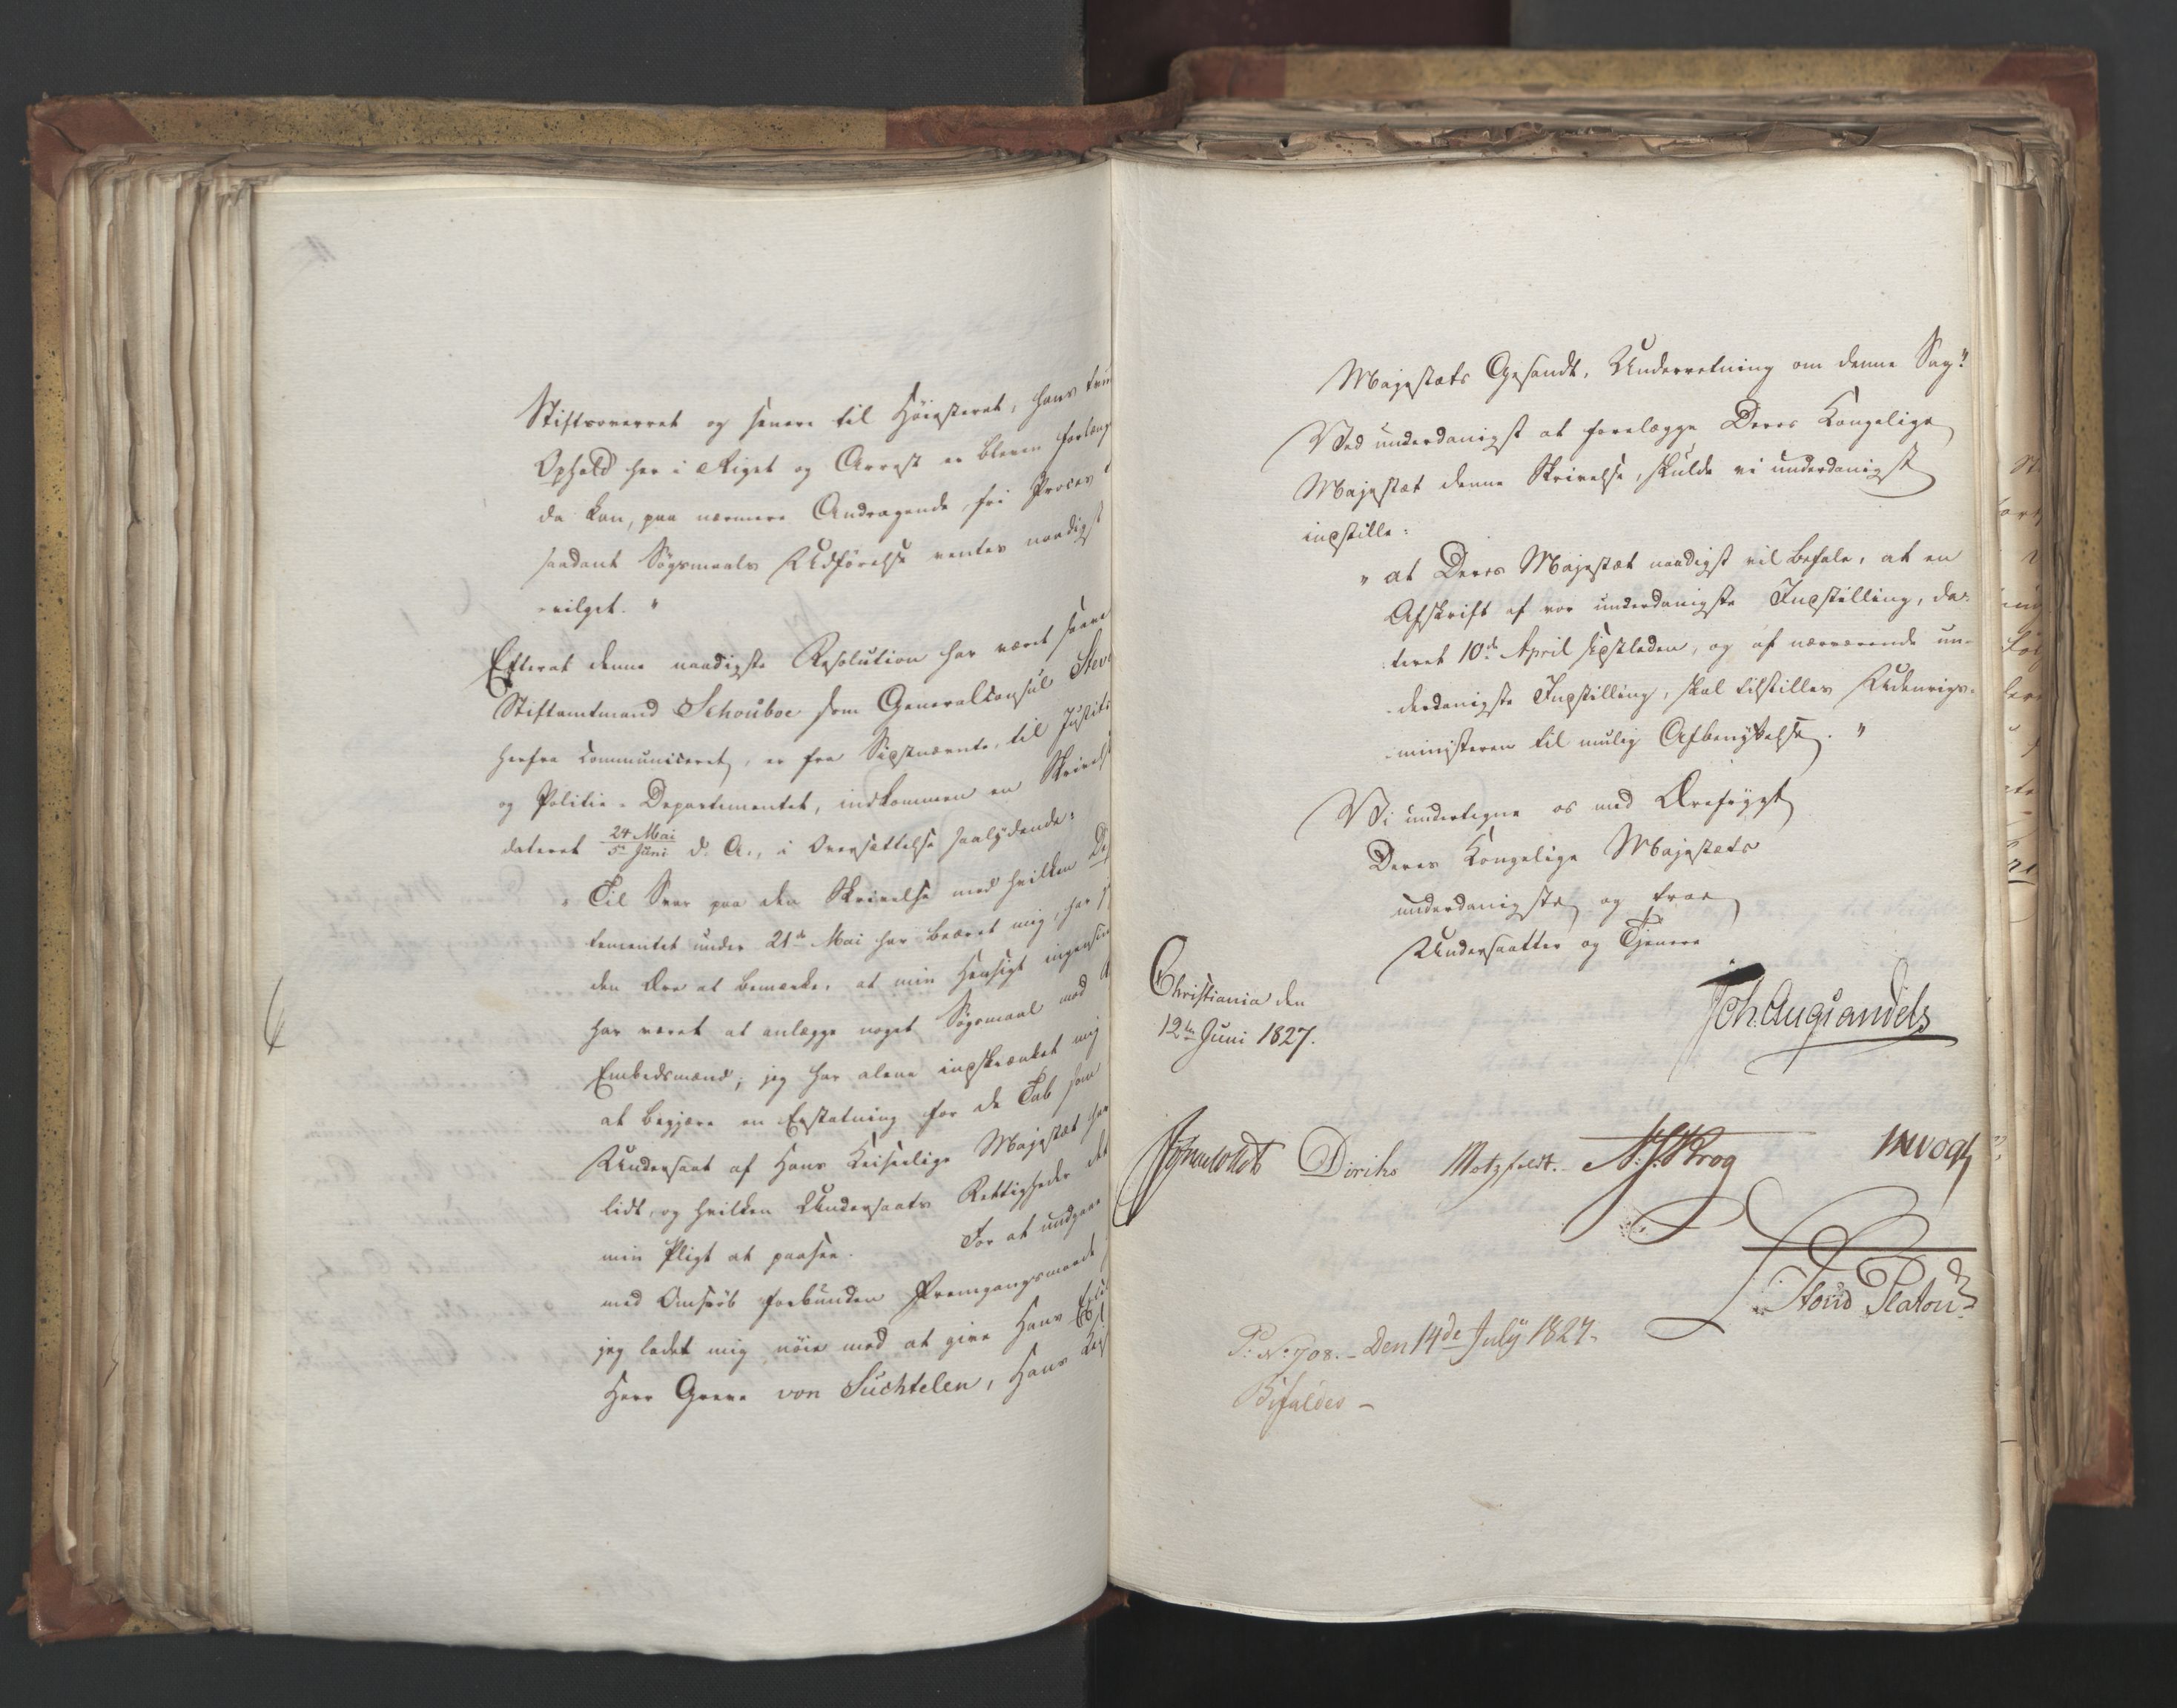 Stiftsoverret og senere til Høiesteret, hans
Ophold her i Riget og Arrest er bleven forlæng
da kan, paa nærmere Andragende, fri Proces
saadant Søgsmaals Udførelse ventes naadigst
-vilget. "
Efterat denne naadigste Resolution har været saave
Stiftamtmand Schouboe som Generalconsul
herfra communiceret, er fra Sidstnævnte, til Justits
og Politie-Departementet, indkommen en Skrivelse
dateret 24 Mai / 5te Juni d. A., i Oversættelse saalydende:
" Til Svar paa den Skrivelse med hvilken De
tementet under 21de Mai har beæret mig, har j
den Ære at bemærke, at min Hensigt ingensin
har været at anlægge noget Søgsmaal mod
Embedsmænd; jeg har alene indskrænket mig
at begjære en Erstatning for de Tab som
Undersaat af Hans Keiserlige Majestæt har
lidt, og hvilken Undersaats Rettigheder det
min Pligt at paasee. For at undgaae
med Omsvøb forbunden Fremgangsmaade
jeg ladet mig nøie med at give Hans
Herr Greve von Suchtelen, Hans
Majestæts Gesandt, Underretning om denne Sag."
Ved underdanigst at forelægge Deres Kongelige
Majestæt denne Skrivelse, skulde vi underdanigst
indstille:
" at Deres Majestæt naadigst vil befale, at en
Afskrift af vor underdanigste Indstilling, da-
teret 10de April sidstleden, og af nærværende un-
derdanigste Indstilling, skal tilstilles Udenrigs-
ministeren til mulig Afbenyttelse. "
Vi undertegne os med Ærefrygt
Deres Kongelige Majestæts
underdanigste og troe
Undersaatter og Tjenere
Christiania den
12te Juni 1827.
Joh. Aug. Sandels
Diriks Motzfeldt. Krog Vogt
Stoud Platou
P: No: 708. - Den 14de July 1827.
Bifaldes -